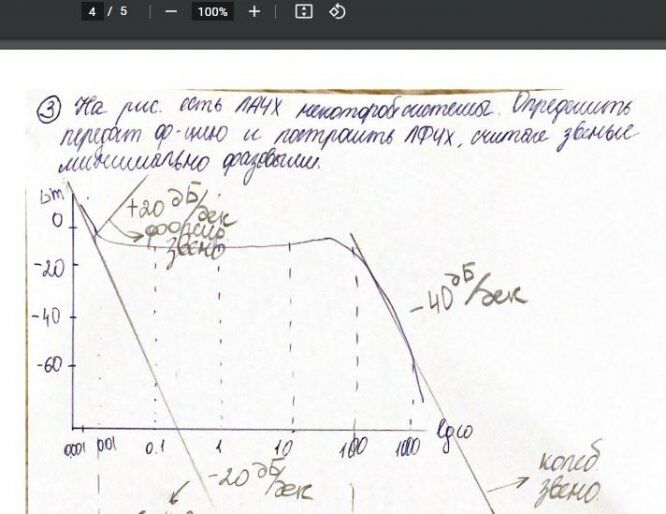 4 / 5
100%
③ На рис. есть ЛАЧХ некоторой системы. Определить
передат ф-цию и построить ЛФЧХ, считая звенья
минимально фазовыми.
Lm
+20 дБ/дек
форсир.
звено
0
-20
-40
-60
-40 дБ/дек
0,001 0,01 0.1 1 10 100 1000 lgω
-20 дБ/дек
колеб.
звено.